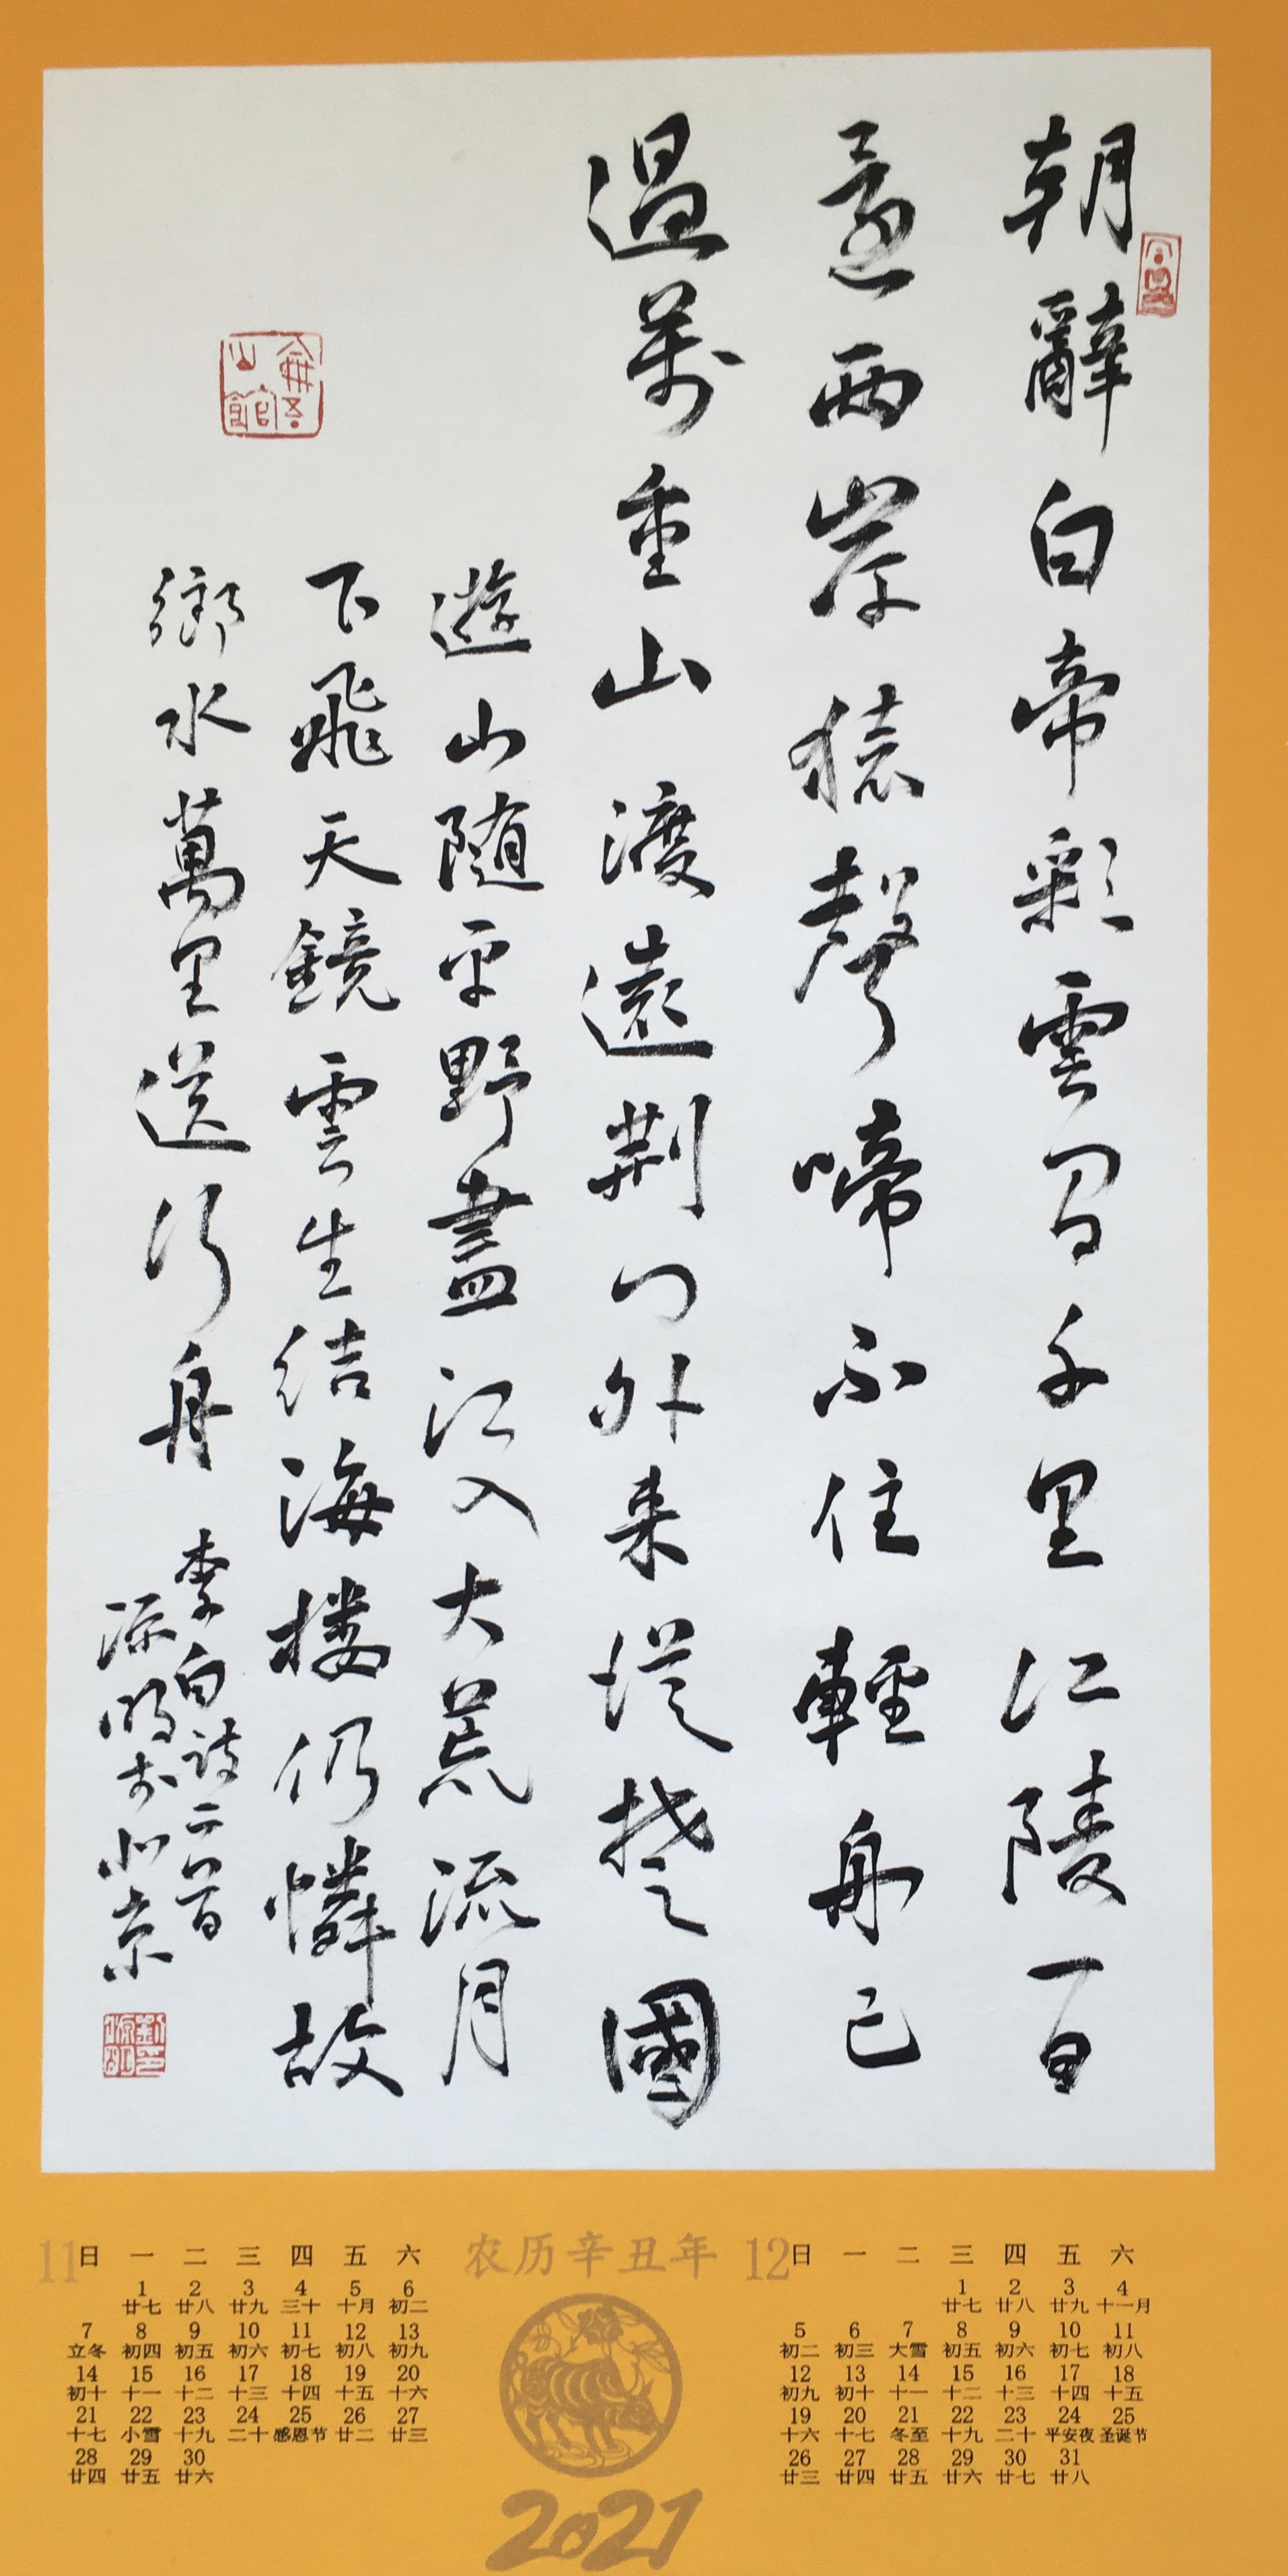 朝辭白帝彩雲间千里江陵一日
還两岸猿聲啼不住輕舟已
過萬重山渡遠荆门外来從楚國
遊山随平野盡江入大荒流月
下飛天鏡雲生结海楼仍憐故
鄉水萬里送行舟
李白詩二首
源明於北京
11
日 一 二 三 四 五 六
1 2 3 4 5 6
廿七 廿八 廿九 三十 十月 初二
7 8 9 10 11 12 13
立冬 初四 初五 初六 初七 初八 初九
14 15 16 17 18 19 20
初十 十一 十二 十三 十四 十五 十六
21 22 23 24 25 26 27
十七 小雪 十九 二十 感恩节 廿二 廿三
28 29 30
廿四 廿五 廿六
农历辛丑年
2021
12
日 一 二 三 四 五 六
1 2 3 4
廿七 廿八 廿九 十一月
5 6 7 8 9 10 11
初二 初三 大雪 初五 初六 初七 初八
12 13 14 15 16 17 18
初九 初十 十一 十二 十三 十四 十五
19 20 21 22 23 24 25
十六 十七 冬至 十九 二十 平安夜 圣诞节
26 27 28 29 30 31
廿三 廿四 廿五 廿六 廿七 廿八